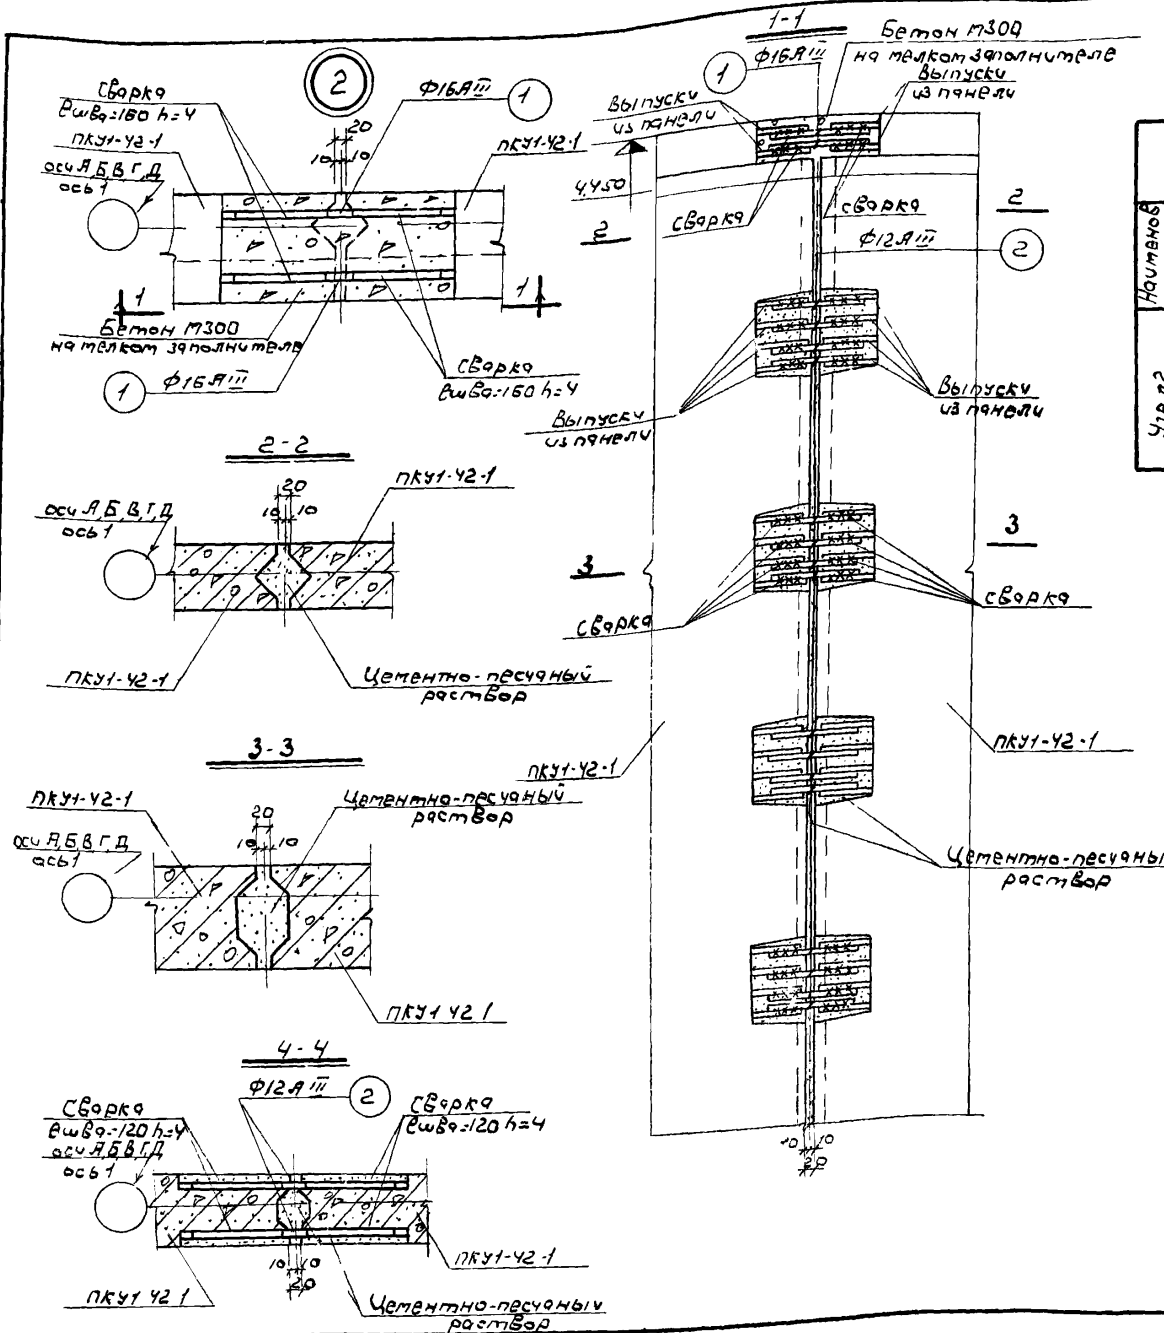 2
Сварка
ℓшва=160 h=4
ПКУ1-42-1
оси А,Б,В,Г,Д
ось 1
20
10 10
Ф16АIII
1
ПКУ1-42-1
1
1
Бетон М300
на мелком заполнителе
1
Ф16АIII
Сварка
ℓшва=160 h=4
2-2
20
10 10
ПКУ1-42-1
оси А,Б,В,Г,Д
ось 1
ПКУ1-42-1
Цементно-песчаный
раствор
3-3
ПКУ1-42-1
20
10 10
Цементно-песчаный
раствор
оси А,Б,В,Г,Д
ось 1
ПКУ1 42 1
4-4
Ф12АIII
2
Сварка
ℓшва=120 h=4
оси А,Б,В,Г,Д
ось 1
Сварка
ℓшва=120 h=4
10 10
20
ПКУ1-42-1
ПКУ1 42 1
Цементно-песчаный
раствор
1-1
1
Ф16АIII
Бетон М300
на мелком заполнителе
Выпуски
из панели
Выпуски
из панели
4.450
2
2
сварка
сварка
Ф12АIII
2
Выпуски
из панели
Выпуски
из панели
3
3
Сварка
сварка
ПКУ1-42-1
ПКУ1-42-1
Цементно-песчаны
раствор
10 10
20
Наименов